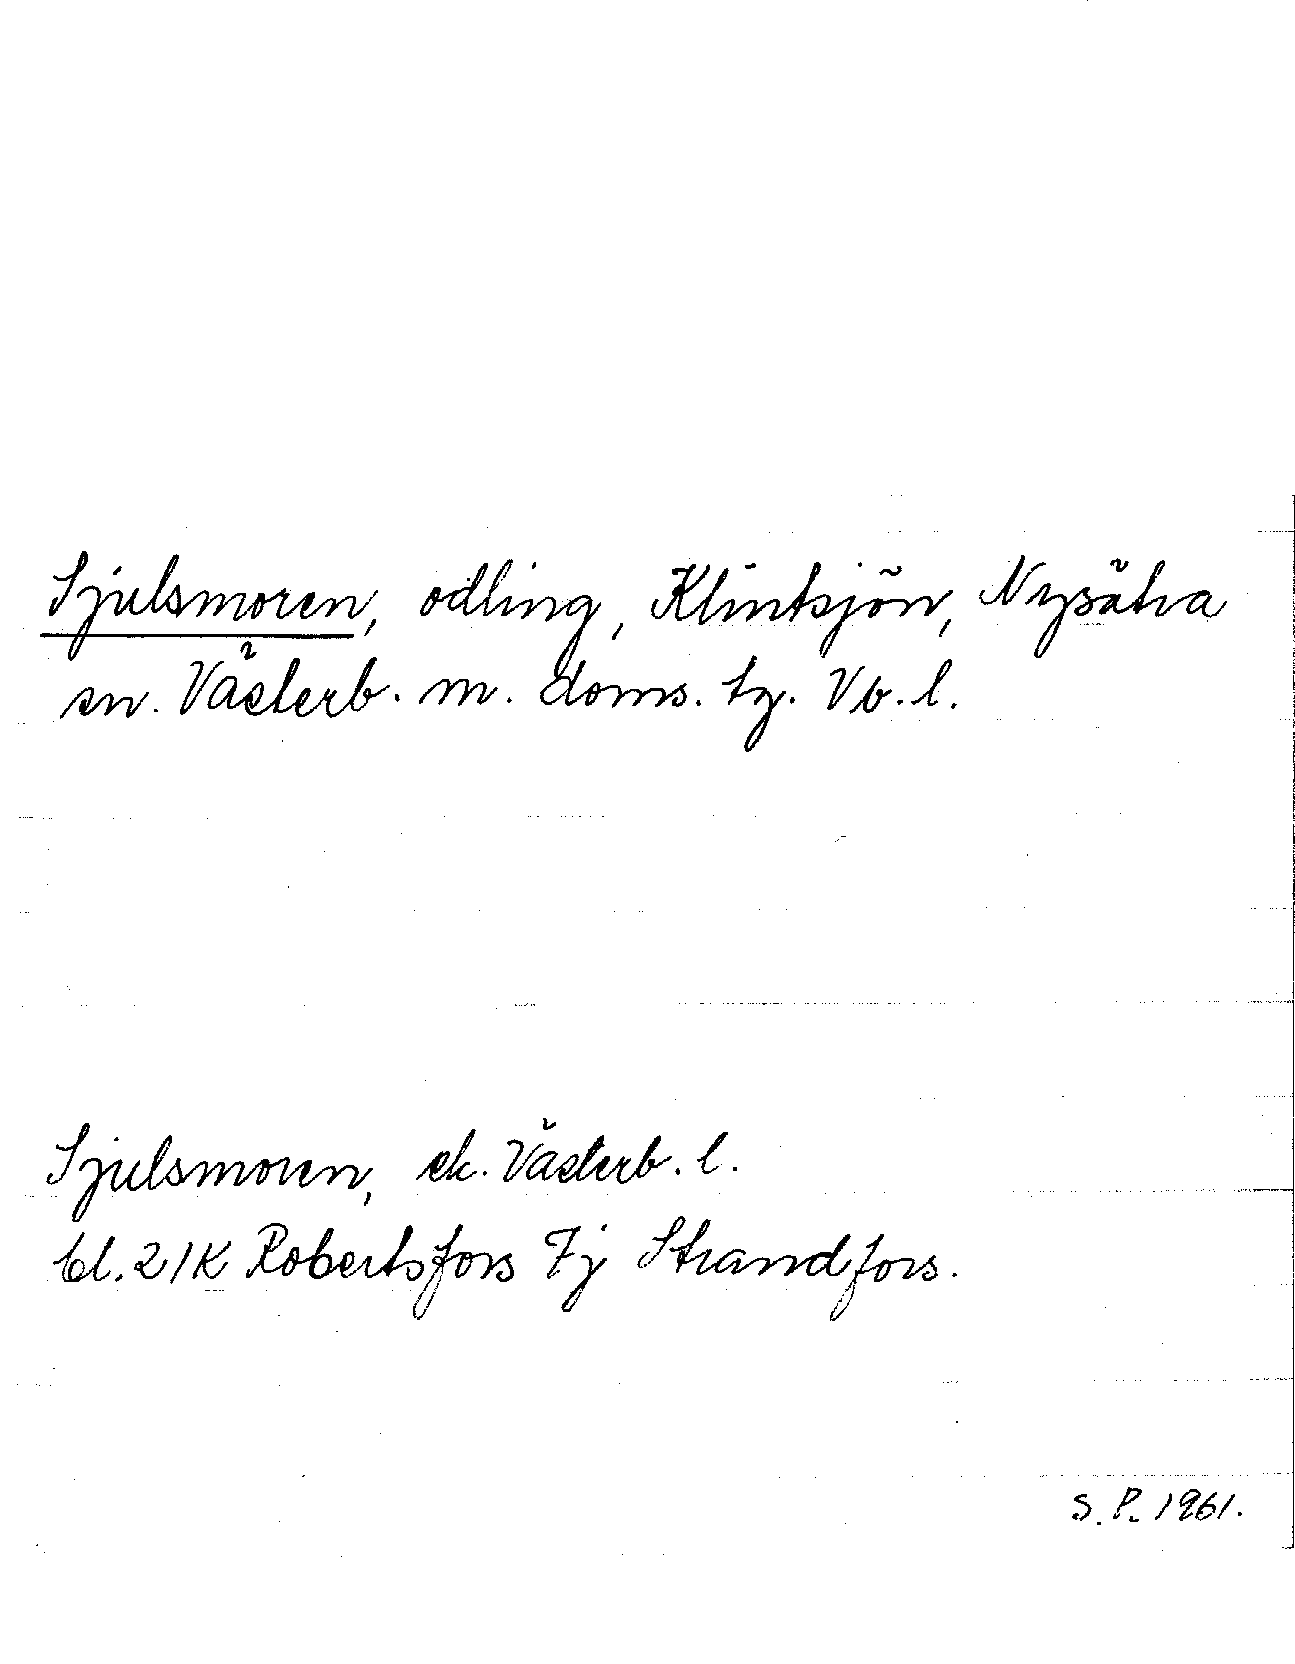 Sjulsmoren, odling, Klintsjön, Nysätra
sn. Västerb. m. doms. tg. Vb. l.
Sjulsmoren, ek. Västerb. l.
bl. 21K Robertsfors 7j Strandfors.
S. P. 1961.